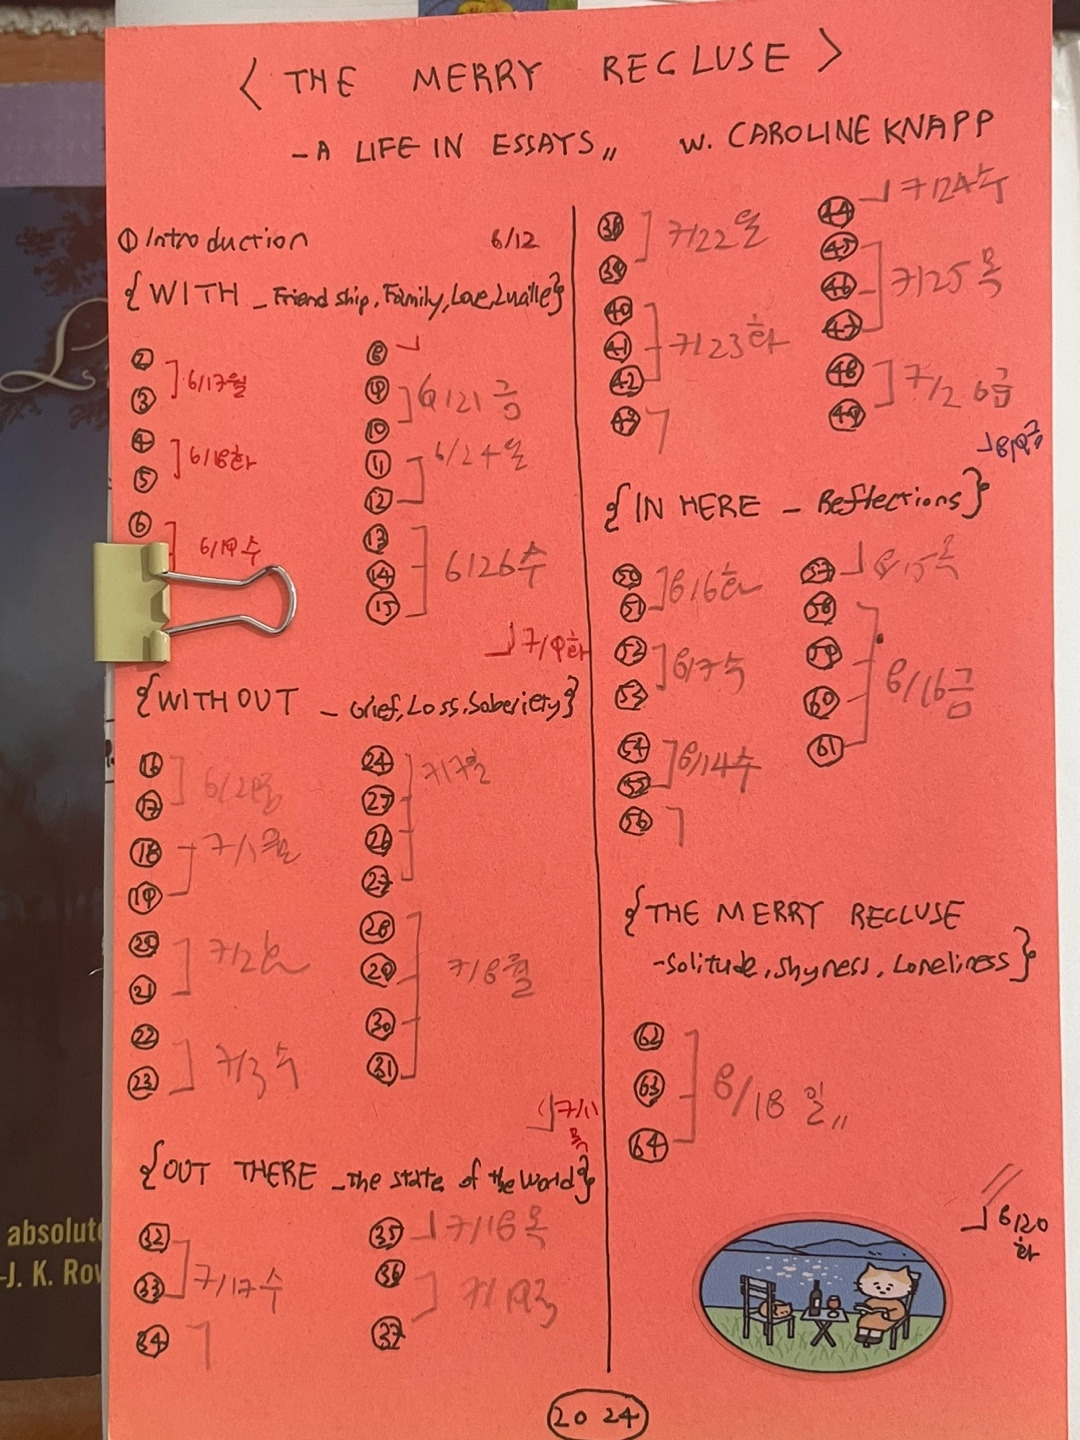 < THE MERRY RECLUSE >
- A LIFE IN ESSAYS,, W. CAROLINE KNAPP
① Introduction 6/12
{WITH - Friendship, Family, Love, Lucille}
② ③ 6/17월
④ ⑤ 6/18화
⑥ 6/19수
⑧
⑨ ⑩ 6/21 금
⑪ ⑫ 6/24월
⑬ ⑭ ⑮ 6/26수
7/9화
{WITHOUT - Grief, Loss, Soberiety}
⑯ ⑰
⑱ ⑲ 7/1월
⑳ ㉑ 7/2화
㉒ ㉓ 7/3수
㉔ ㉕ ㉖ ㉗ 7/7일
㉘ ㉙ ㉚ ㉛ 7/8월
7/11
목
{OUT THERE - The state of the World}
㉜ ㉝ 7/17수
㉞
㉟ 7/18목
㊱ ㊲ 7/19금
㊳ ㊴ 7/22월
㊵ ㊶ ㊷ 7/23화
㊸
㊹ 7/24수
㊺ ㊻ ㊼ 7/25목
㊽ ㊾ 7/26금
{IN HERE - Reflections}
㊿ 51 8/6화
52 53 8/7수
54 55 8/14수
56
57 8/15목
58 59 60 61 8/16금
{THE MERRY RECLUSE
- Solitude, Shyness, Loneliness}
62 63 64 8/18일,,
8/20
화
2024
absolute
-J. K. Row